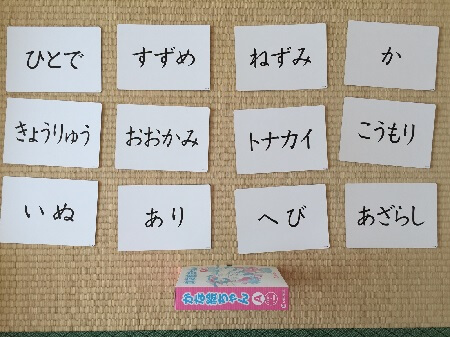 ひとで
すずめ
ねずみ
か
きょうりゅう
おおかみ
トナカイ
こうもり
いぬ
あり
へび
あざらし
かな絵ちゃん A